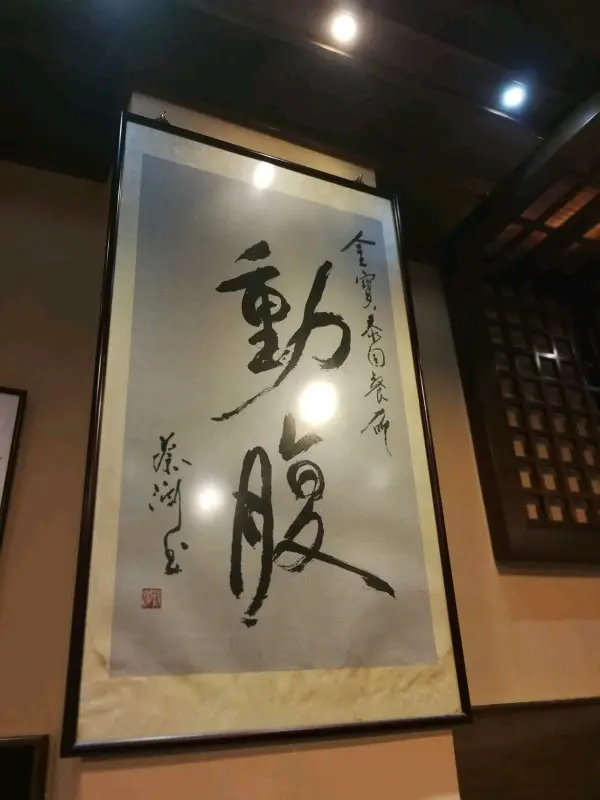 金寶泰國餐廳
動腹
蔡瀾書